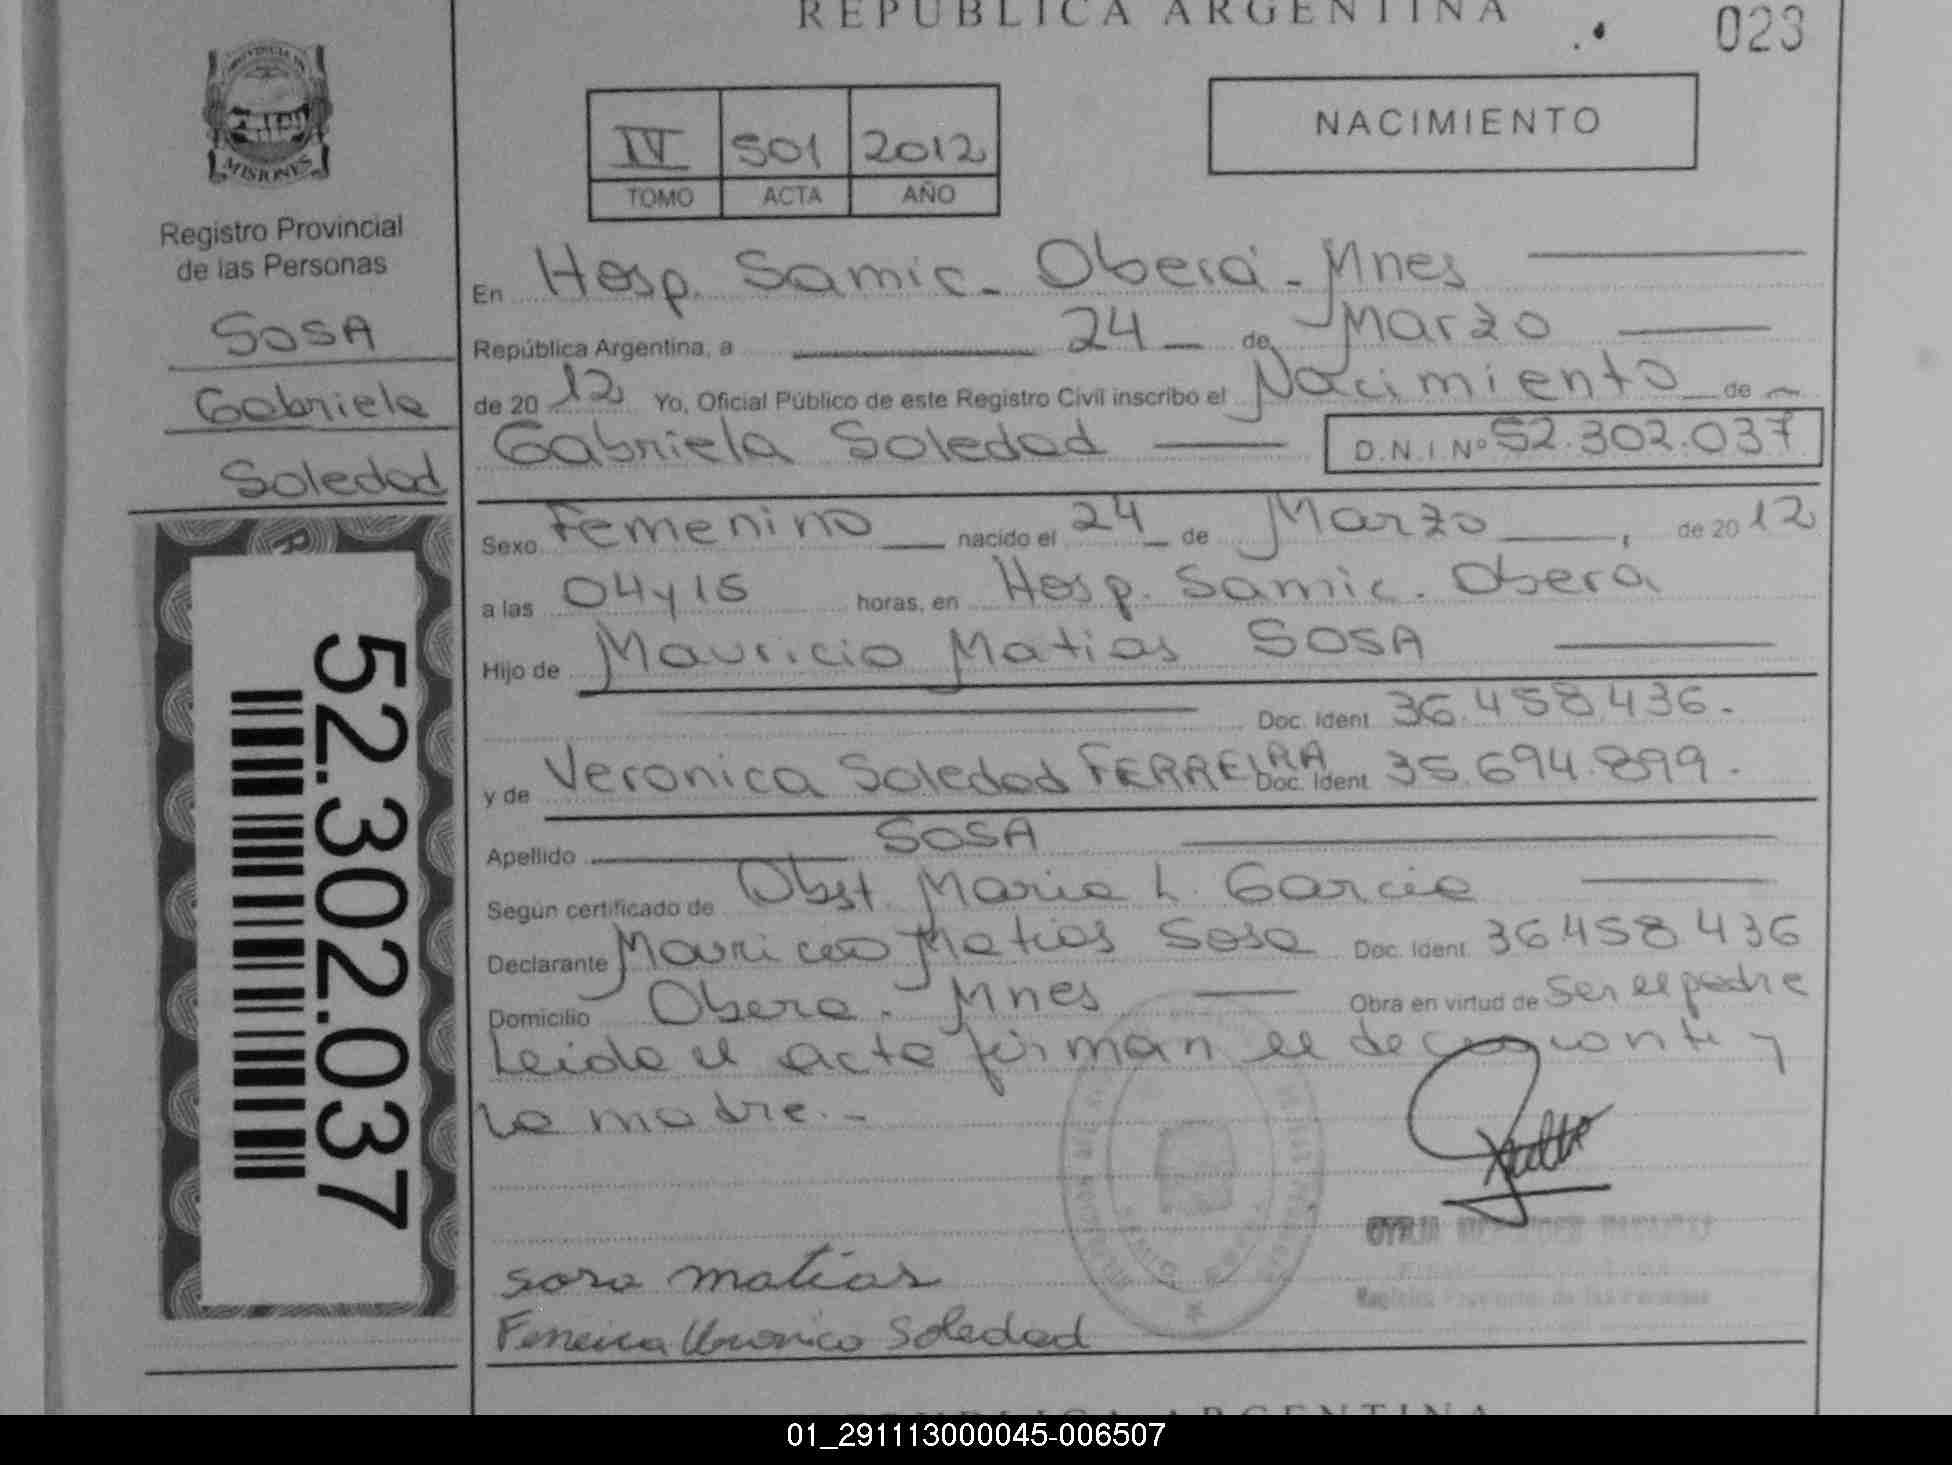 REPUBLICA ARGENTINA
023
MISIONES
Registro Provincial
de las Personas
SOSA
Gabriela
Soledad
52.302.037
IV 501 2012
TOMO ACTA AÑO
NACIMIENTO
En Hosp. Samic - Oberá - Mnes
República Argentina, a 24 de Marzo
de 20 12 Yo, Oficial Público de este Registro Civil inscribo el Nacimiento de
Gabriela Soledad D.N.I. Nº 52.302.037
Sexo Femenino nacido el 24 de Marzo, de 20 12
a las 04 y 15 horas, en Hosp. Samic. Obera
Hijo de Mauricio Matias SOSA
Doc. Ident 36.458.436.
y de Veronica Soledad FERREIRA Doc. Ident 35.694.899.
Apellido SOSA
Según certificado de Obst. Maria L. Garcia
Declarante Mauricio Matias Sosa Doc. Ident. 36.458.436
Domicilio Obera. Mnes Obra en virtud de ser el padre
Leida el acta firman el declarante y
la madre.-
sosa matias
Ferreira Veronica Soledad
Registro Provincial de las Personas
REPUBLICA ARGENTINA
01_291113000045-006507